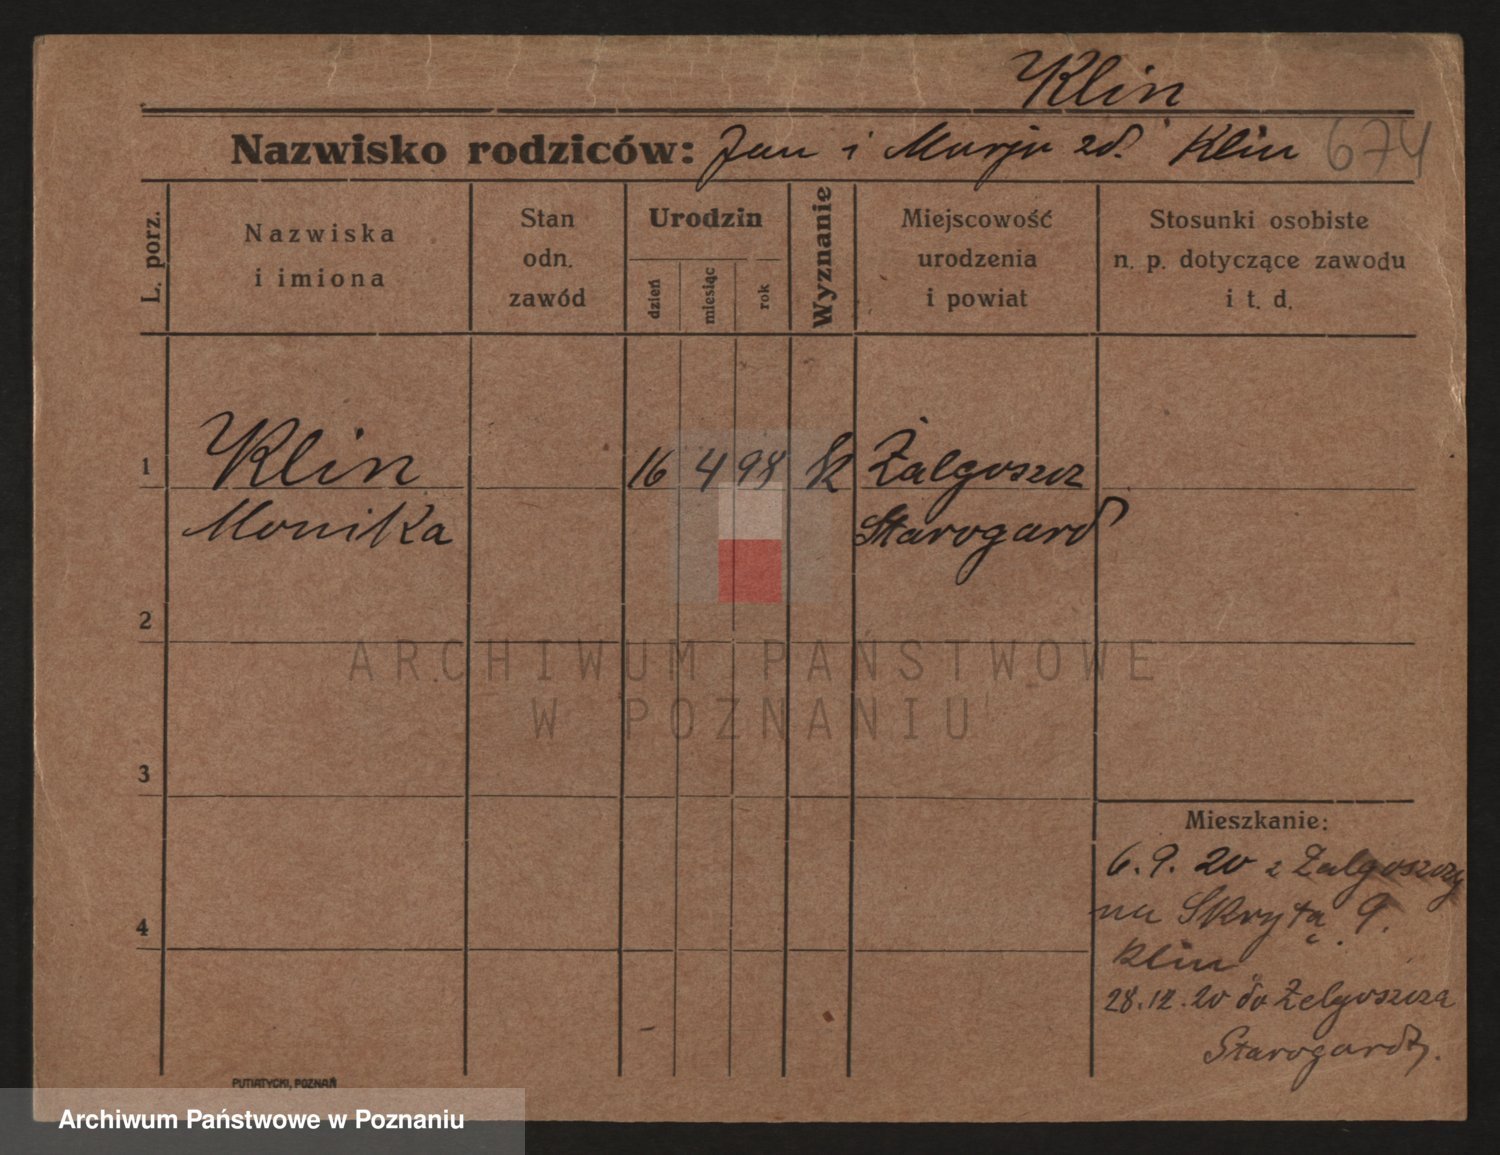 Klin
Nazwisko rodziców: Jan i Marja zd. Klin 674
L. porz.
Nazwiska
i imiona
Stan
odn.
zawód
Urodzin
dzień
miesiąc
rok
Wyznanie
Miejscowość
urodzenia
i powiat
Stosunki osobiste
n. p. dotyczące zawodu
i t. d.
1 Klin 16 4 98 k Żalgoszcz
Monika Starogard
2
3
Mieszkanie:
6.9.20 z Żalgoszczy
na Skrytą 9.
4
Klin
28.12.20 do Żelgoszcza
Starogard
PUTIATYCKI, POZNAŃ
ARCHIWUM PAŃSTWOWE
W POZNANIU
Archiwum Państwowe w Poznaniu